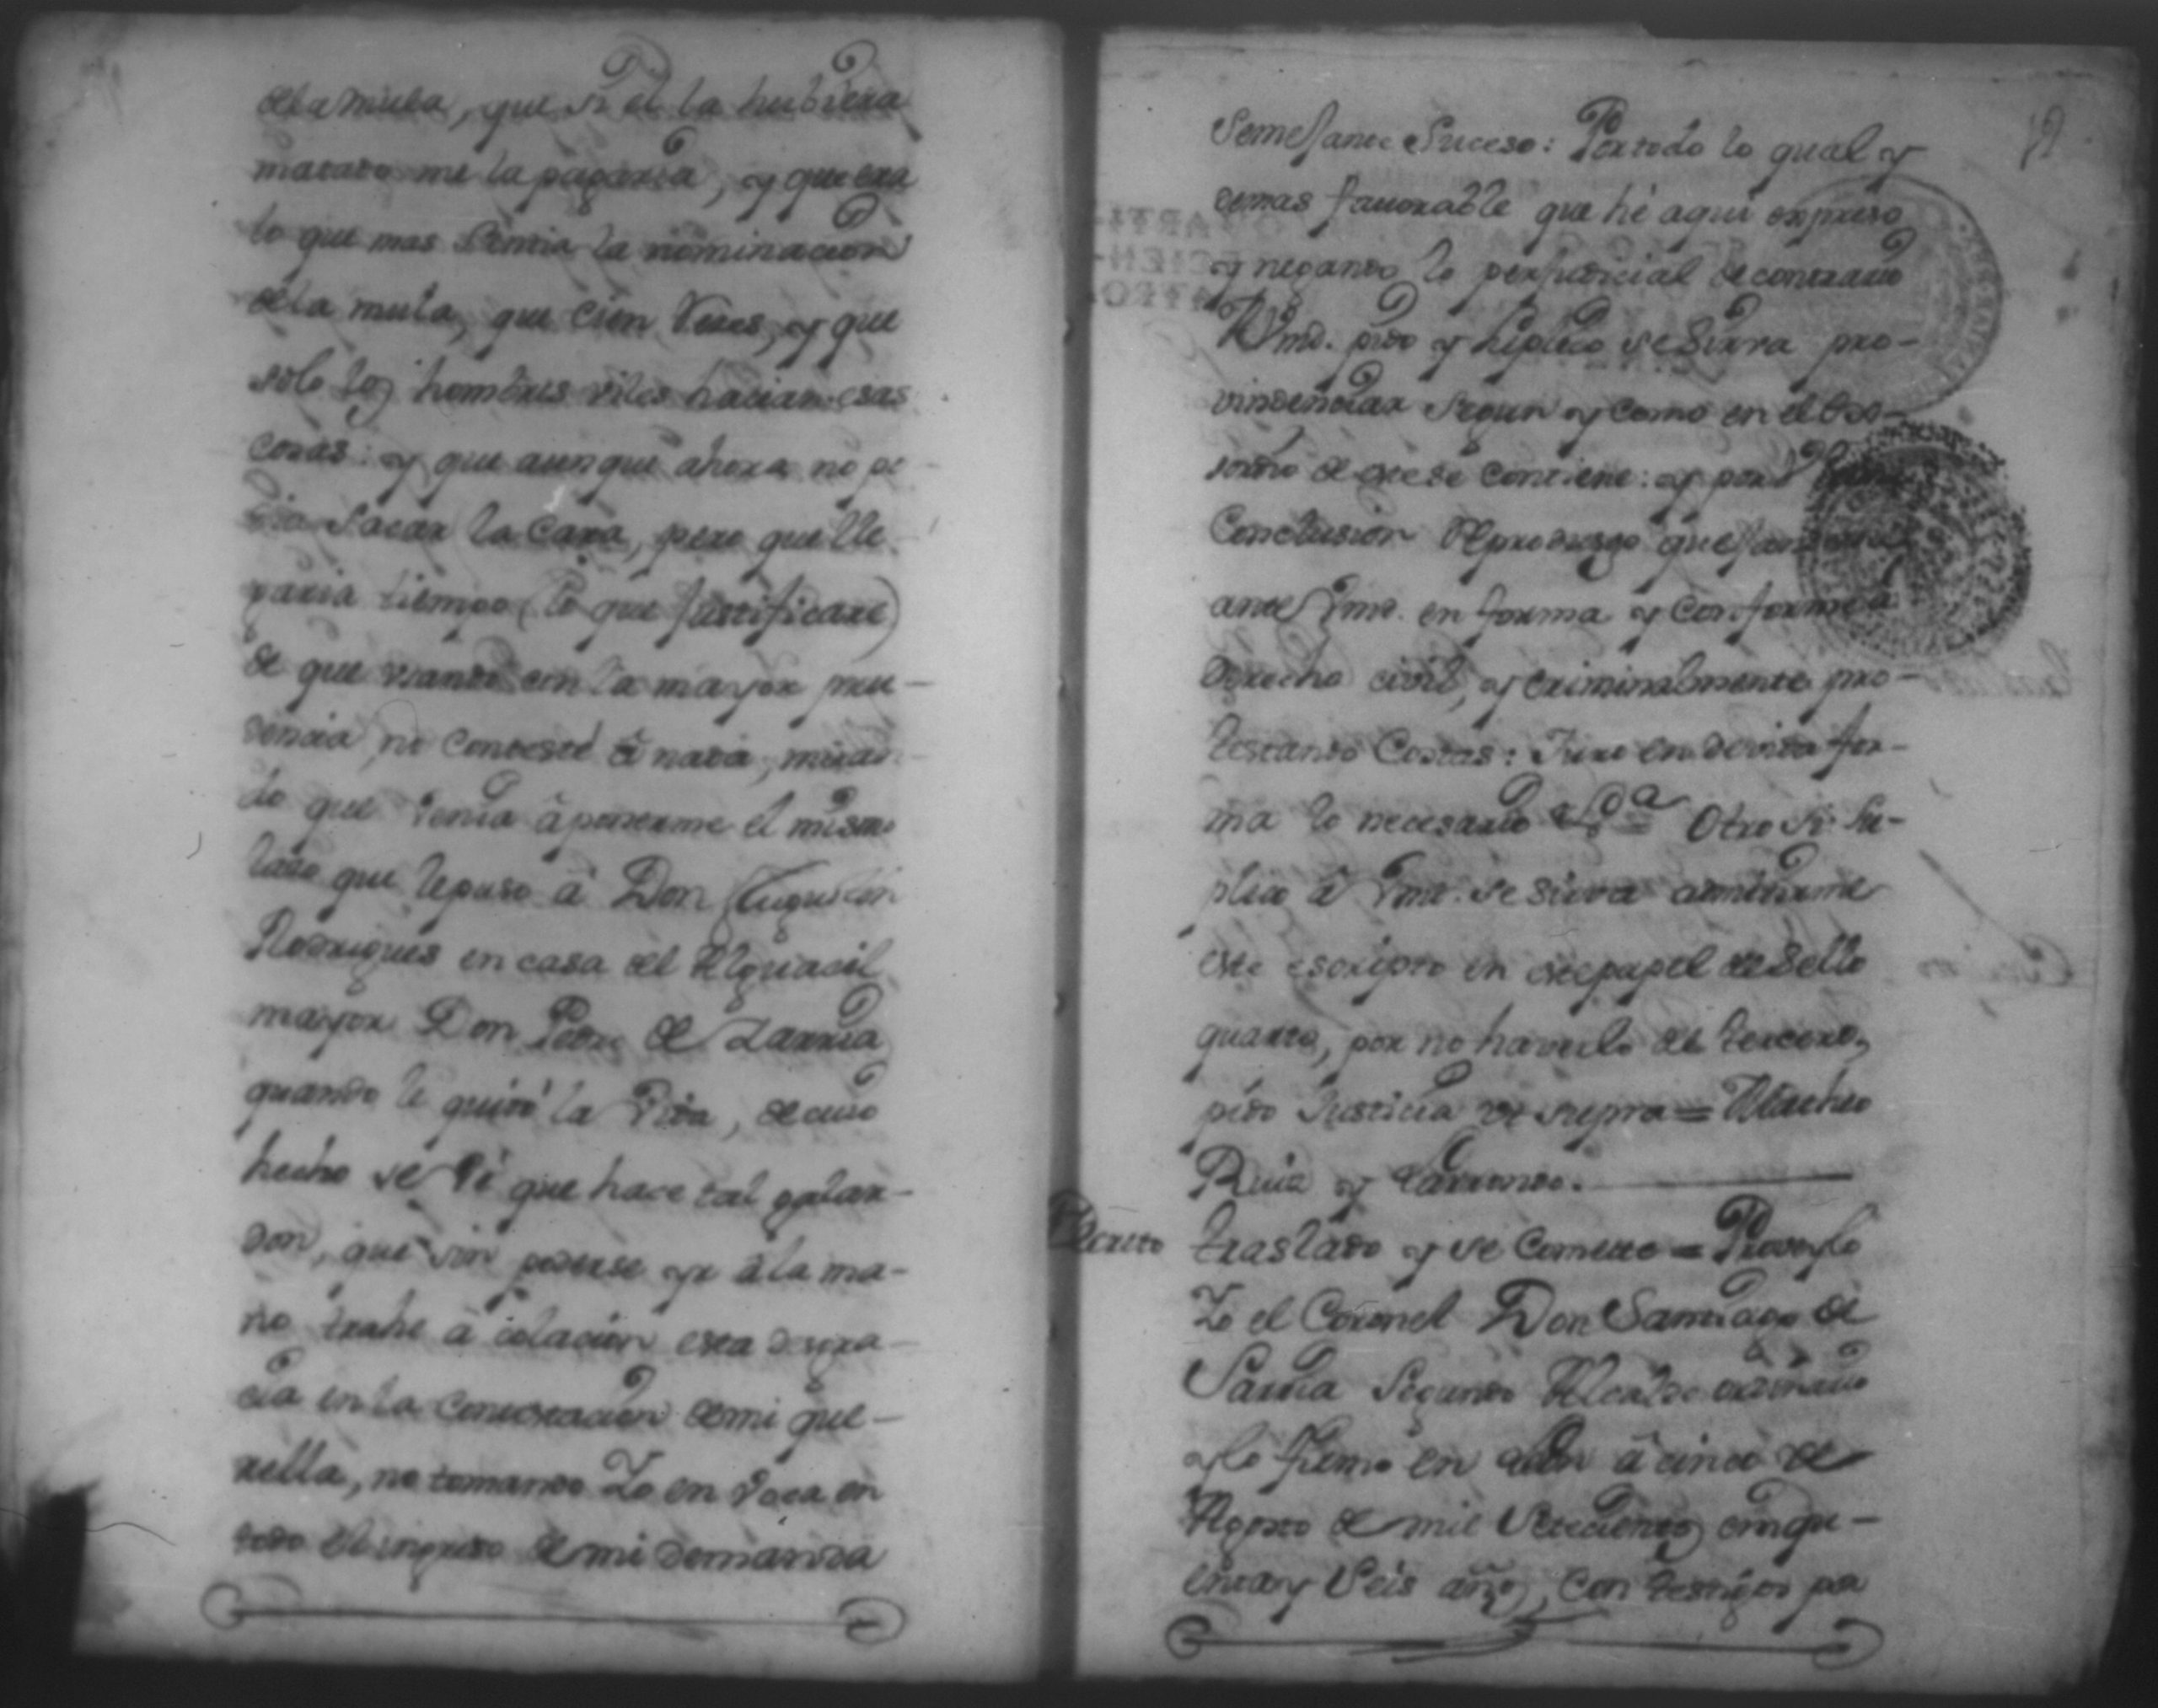 dela mula, que si el la hubiera
matado me la pagaria, y que era
lo que mas sentia la nominacion
dela mula, que cien Veces, y que
solo los hombres viles hacian esas
cosas: y que aunque ahora no po-
dia Sacar la Cara, pero que lle-
garia tiempo (lo que justificare)
de que usando con la mayor pru-
dencia, no Contesté â nada, miran-
do que venia â ponerme el mismo
lazo que le puso â Don Augustin
Rodrigues en casa del Alguacil
mayor Don Pedro de Zarria
quando le quitó la Vida, de cuio
hecho se vé que hace tal galar-
don, que sin poderse yr â la ma-
no trahe â colacion esta desgra-
cia en la Contestacion de mi que-
rella, no tomando Yo en Voca en
todo el ingreso de mi demanda
Semejante Suceso: Por todo lo qual y
demas favorable que hé aqui expreso
y negando lo perjudicial de contrario
A Vmd. pido y suplico se Sirva pro-
vindenciar segun y como en el Exo-
rdio de este se Contiene: y por
Conclusion Reproduzgo que
ante Vmd. en forma y Conforme a
derecho civil, y criminalmente pro-
testando Costas: Juro en devida for-
ma lo necesario &a = Otro si Su-
plico â Vmd. se sirva admitirme
este escripto en este papel de Sello
quarto, por no haverlo del tercero,
pido Justicia ut supra = Matheo
Ruiz y Larrondo.
Decreto
traslado y se Comette = Proveylo
Yo el Coronel Don Santiago de
Sarria Segundo Alcalde ordinario
y lo firmo en â cinco de
Agosto de mil Setecientos cinqu-
enta y Seis años, Con testigos por